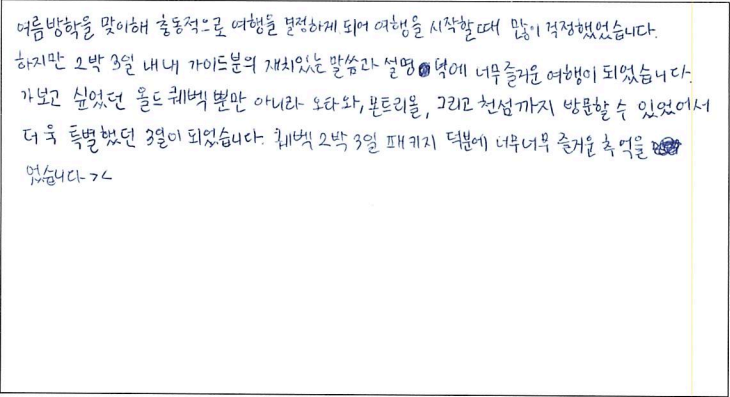 여름방학을 맞이해 출동적으로 여행을 결정하게 되어 여행을 시작할때 많이 걱정했었습니다.
하지만 2박 3일 내내 가이드분의 재치있는 말씀과 설명 덕에 너무 즐거운 여행이 되었습니다.
가보고 싶었던 올드 퀘벡 뿐만 아니라 오타와, 몬트리올, 그리고 천섬까지 방문할 수 있었어서
더욱 특별했던 3일이 되었습니다. 퀘벡 2박 3일 패키지 덕분에 너무너무 즐거운 추억을
었습니다 ><